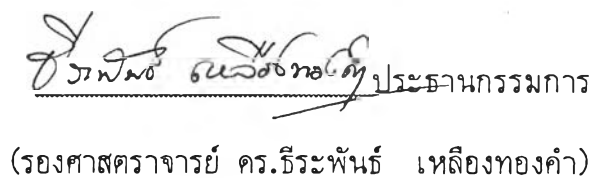 ธีระพันธ์ เหลืองทองคำ ประธานกรรมการ
(รองศาสตราจารย์ ดร.ธีระพันธ์ เหลืองทองคำ)